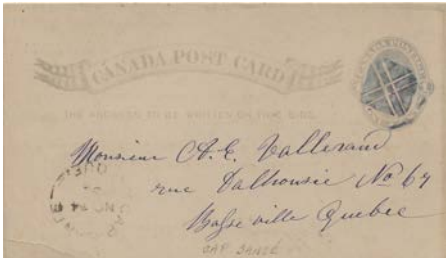 CANADA POST CARD
THE ADDRESS TO BE WRITTEN ON THIS SIDE.
Monsieur A. E. Vallerand
rue Dalhousie No 67
Basse ville Quebec
CAP SANTÉ